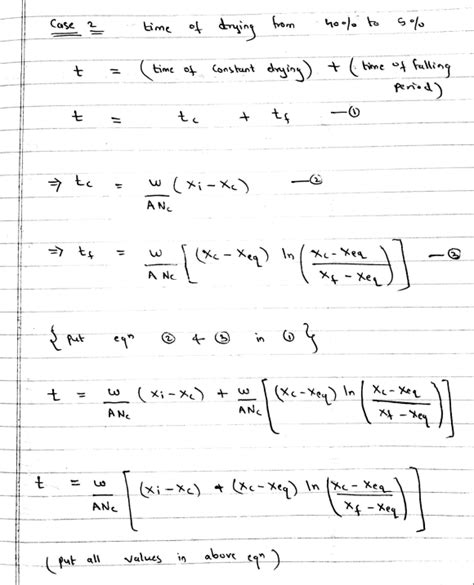 Case 2 time of drying from 40% to 5%
t = (time of constant drying) + (time of falling period)
t = tc + tf —①
⇒ tc = w/ANc (xi - xc) —②
⇒ tf = w/ANc [(xc - xeq) ln (xc - xeq / xf - xeq)] —③
{ put eqn ② & ③ in ① }
t = w/ANc (xi - xc) + w/ANc [(xc - xeq) ln (xc - xeq / xf - xeq)]
t = w/ANc [(xi - xc) + (xc - xeq) ln (xc - xeq / xf - xeq)]
(put all values in above eqn)